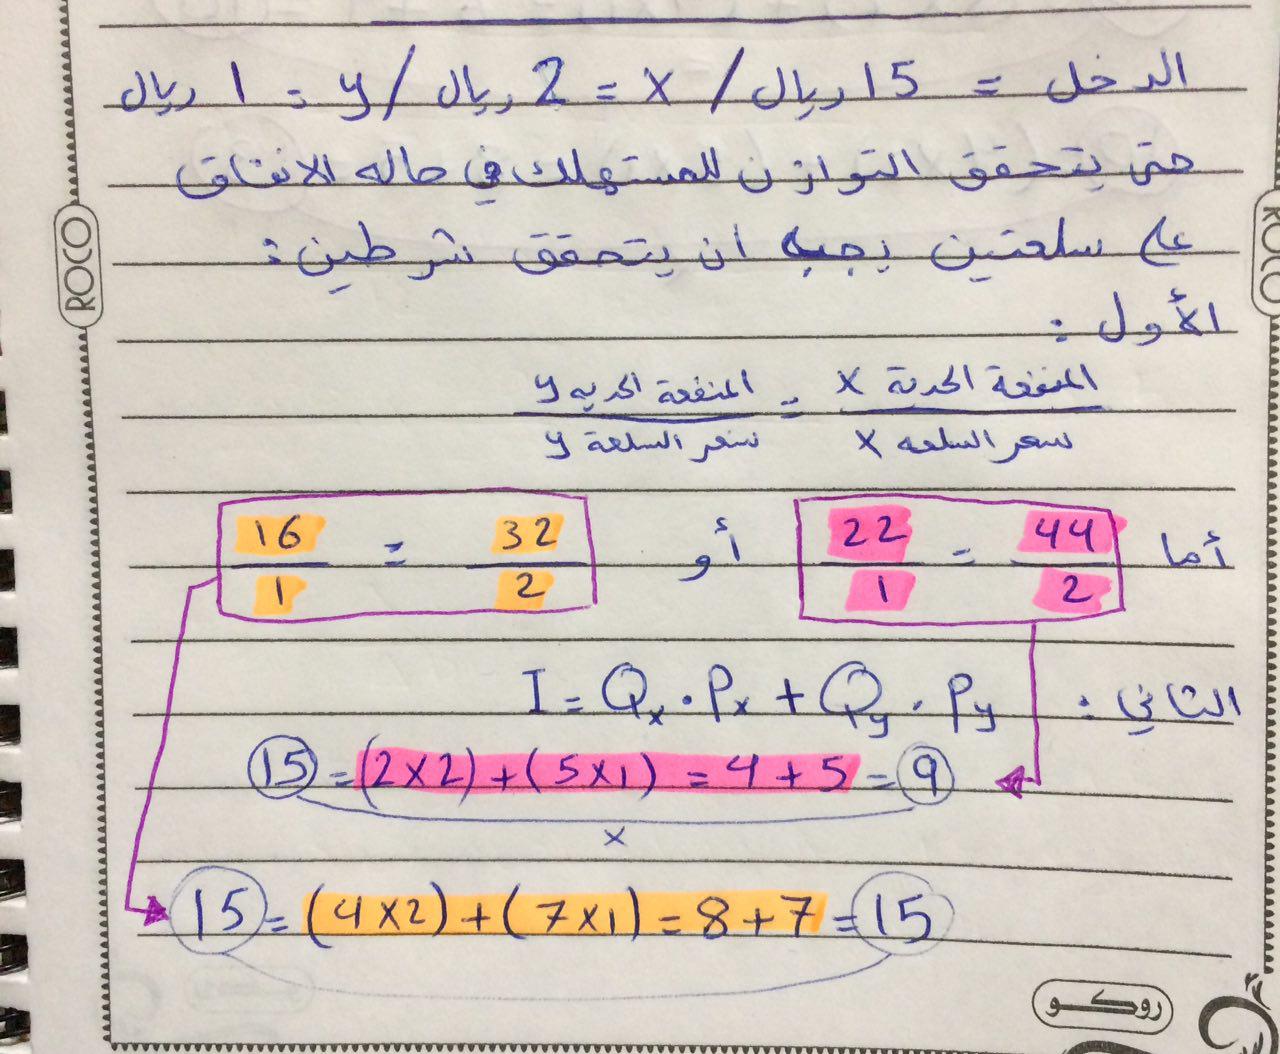 الدخل = 15 ريال / x = 2 ريال / y = 1 ريال
حتى يتحقق التوازن للمستهلك في حاله الانفاق
على سلعتين يجب ان يتحقق شرطين :
الأول :
المنفعة الحدية x = المنفعة الحديه y
سعر السلعه x سعر السلعة y
أما 44/2 = 22/1 أو 32/2 = 16/1
الثاني : I = Qx . Px + Qy . Py
15 = (2x2) + (5x1) = 4 + 5 = 9
x
15 = (4x2) + (7x1) = 8 + 7 = 15
ROCO
ROCO
روكو